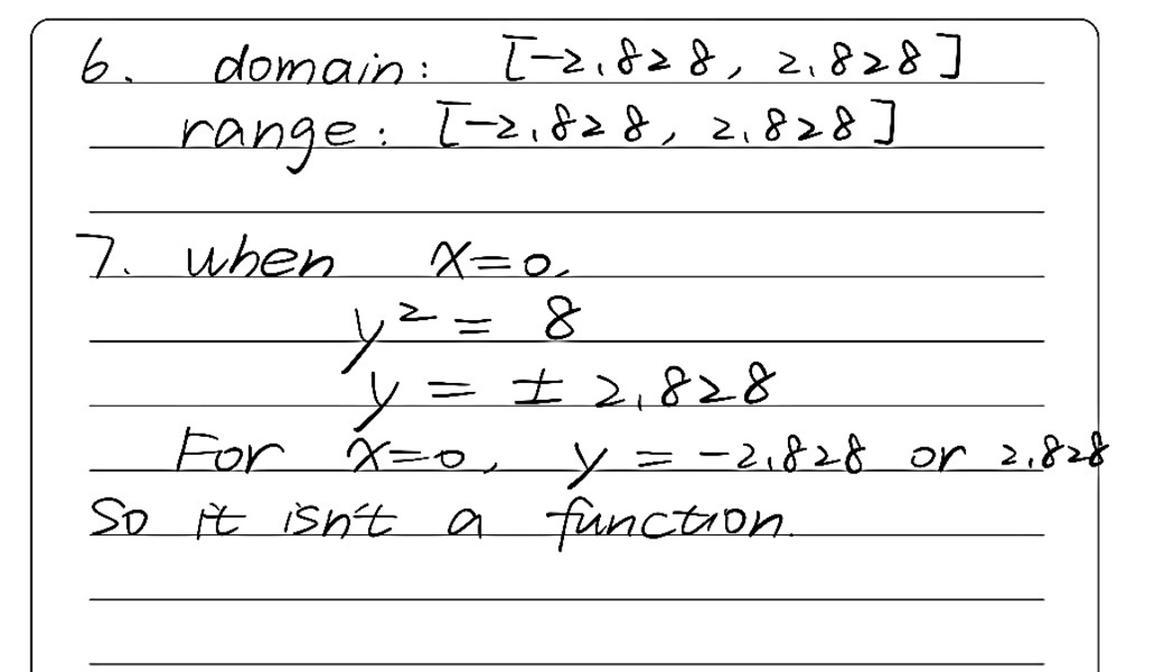 6. domain: [-2.828, 2.828]
range: [-2.828, 2.828]
7. when x=0,
y² = 8
y = ± 2.828
For x=0, y = -2.828 or 2.828
So it isn't a function.